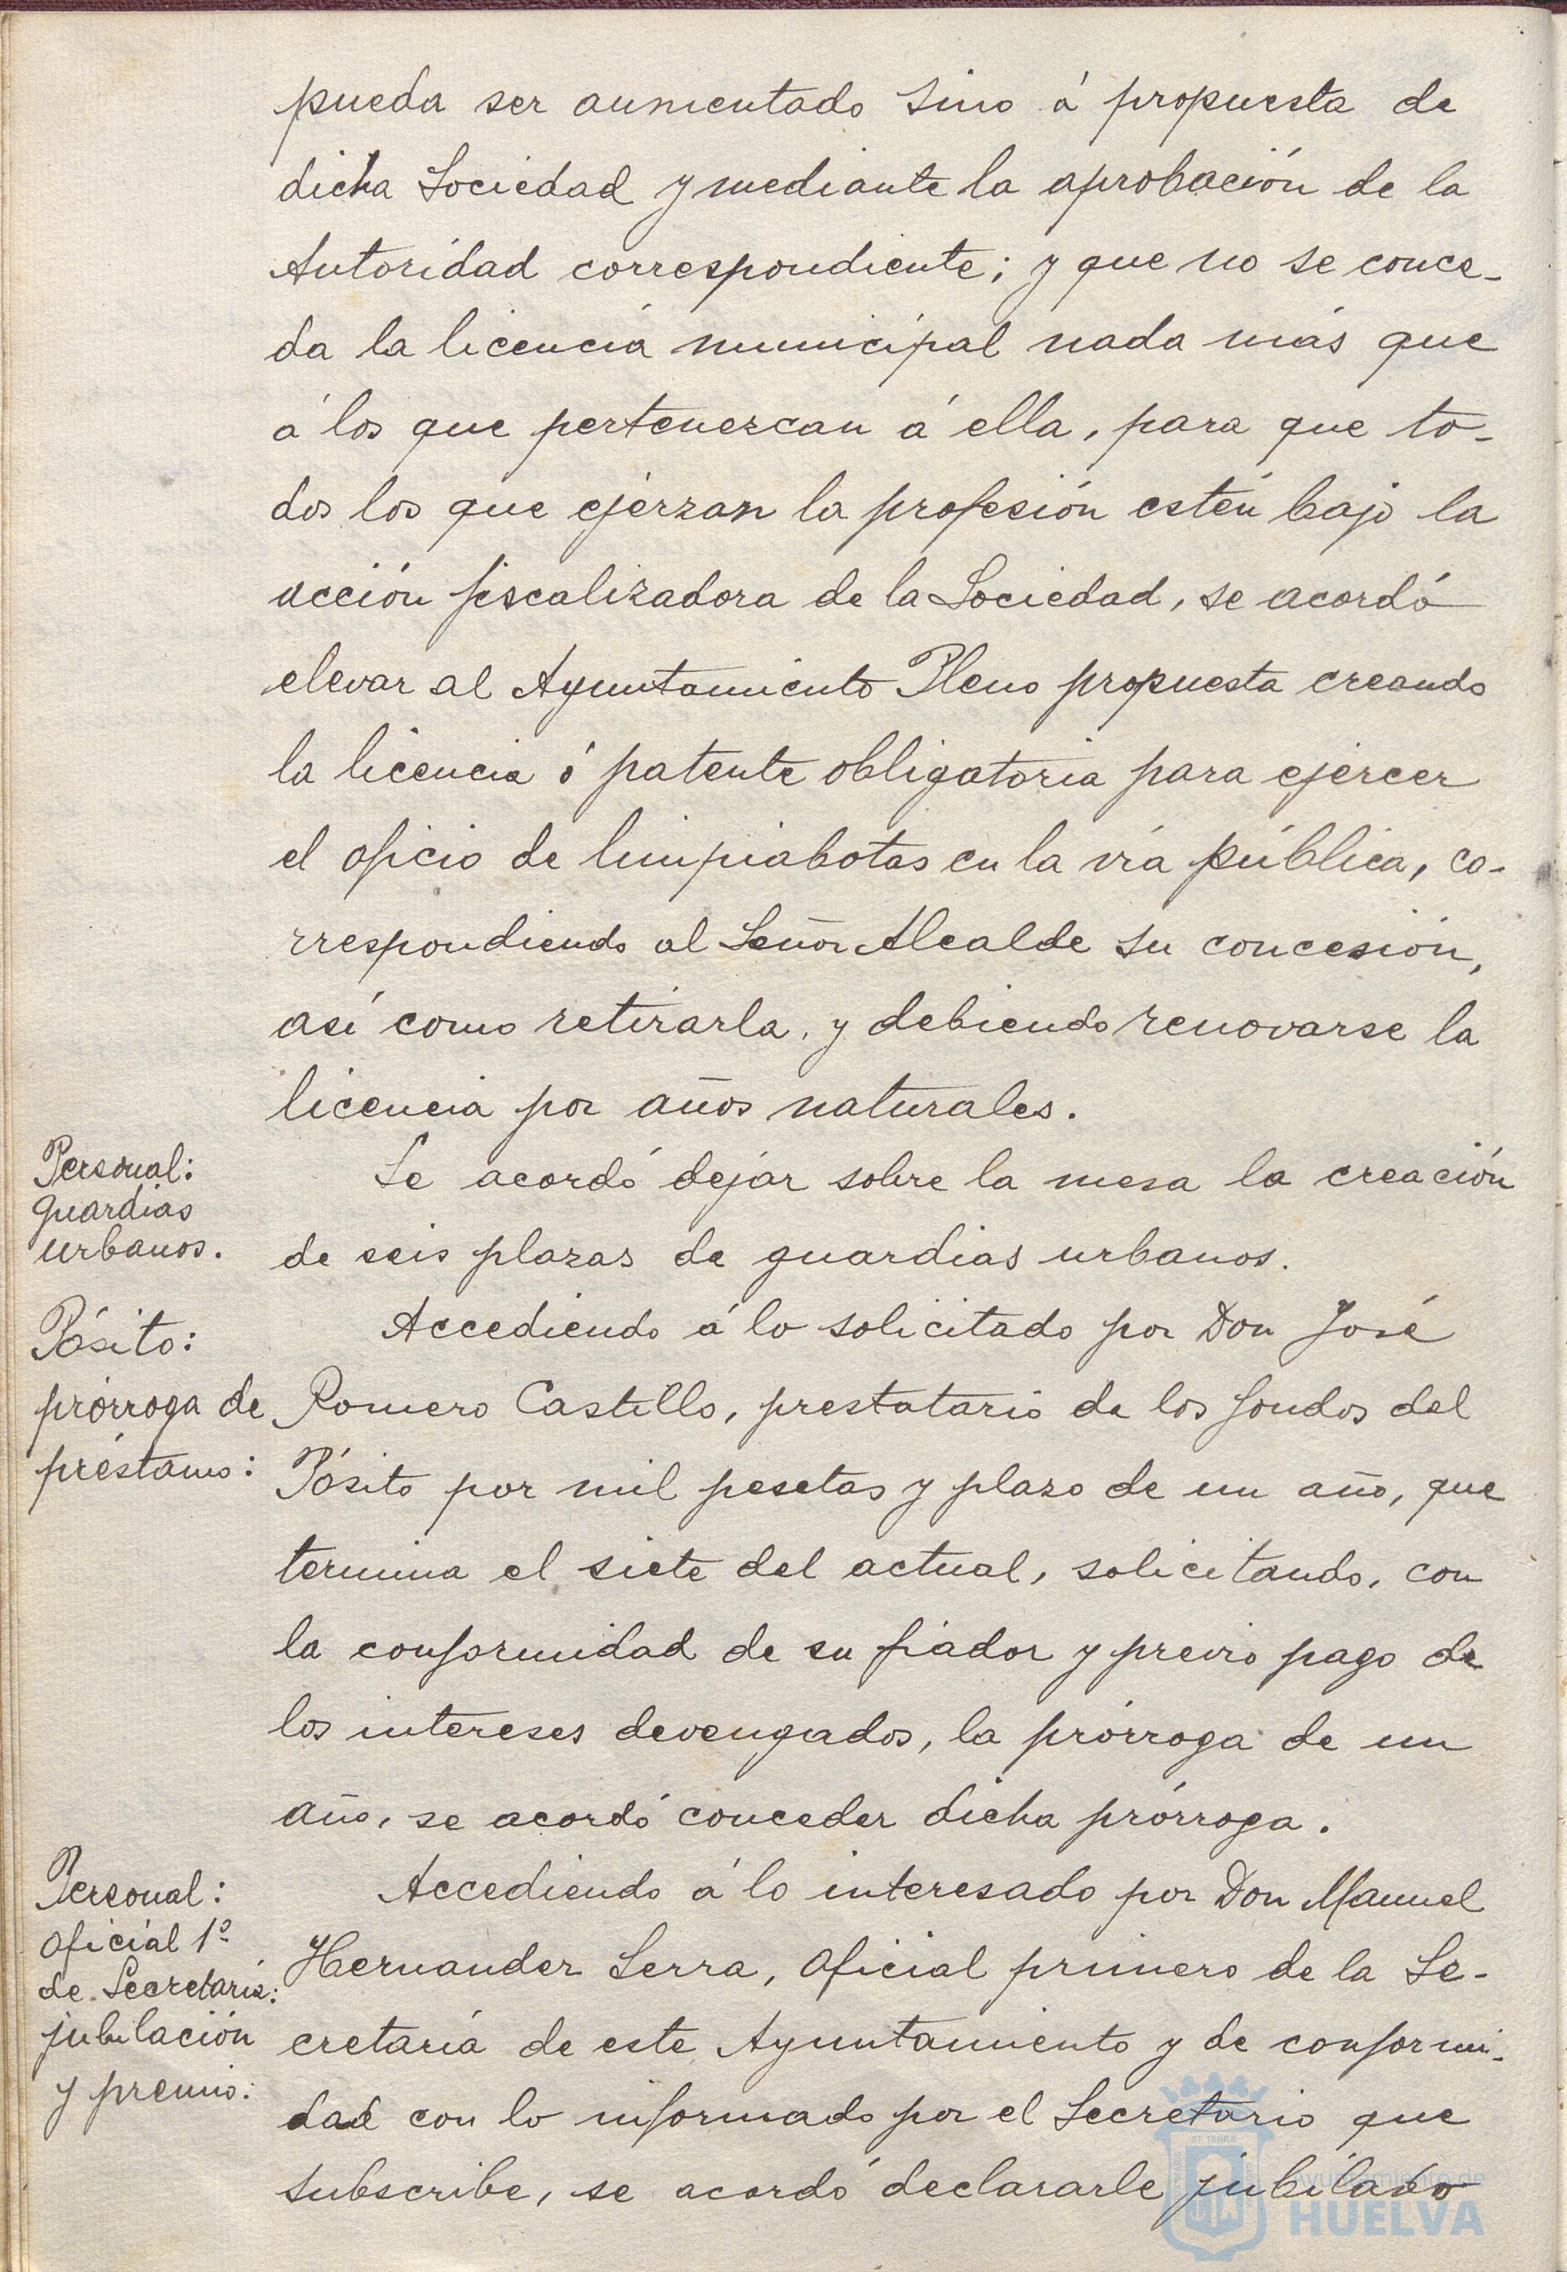 pueda ser aumentado sino á propuesta de
dicha Sociedad y mediante la aprobación de la
Autoridad correspondiente; y que no se conce-
da la licencia municipal nada más que
á los que pertenezcan á ella, para que to-
dos los que ejerzan la profesión estén bajo la
acción fiscalizadora de la Sociedad, se acordó
elevar al Ayuntamiento Pleno propuesta creando
la licencia ó patente obligatoria para ejercer
el oficio de limpiabotas en la vía pública, co-
rrespondiendo al Señor Alcalde su concesión,
así como retirarla, y debiendo renovarse la
licencia por años naturales.
Personal:
guardias
urbanos.
Se acordó dejar sobre la mesa la creación
de seis plazas de guardias urbanos.
Pósito:
prórroga de
préstamo:
Accediendo á lo solicitado por Don José
Romero Castillo, prestatario de los fondos del
Pósito por mil pesetas y plazo de un año, que
termina el siete del actual, solicitando, con
la conformidad de su fiador y previo pago de
los intereses devengados, la prórroga de un
año, se acordó conceder dicha prórroga.
Personal:
Oficial 1º
de Secretaría:
jubilación
y premio:
Accediendo á lo interesado por Don Manuel
Hernandez Serra, Oficial primero de la Se-
cretaría de este Ayuntamiento y de conformi-
dad con lo informado por el Secretario que
subscribe, se acordó declararle jubilado
Ayuntamiento de
HUELVA